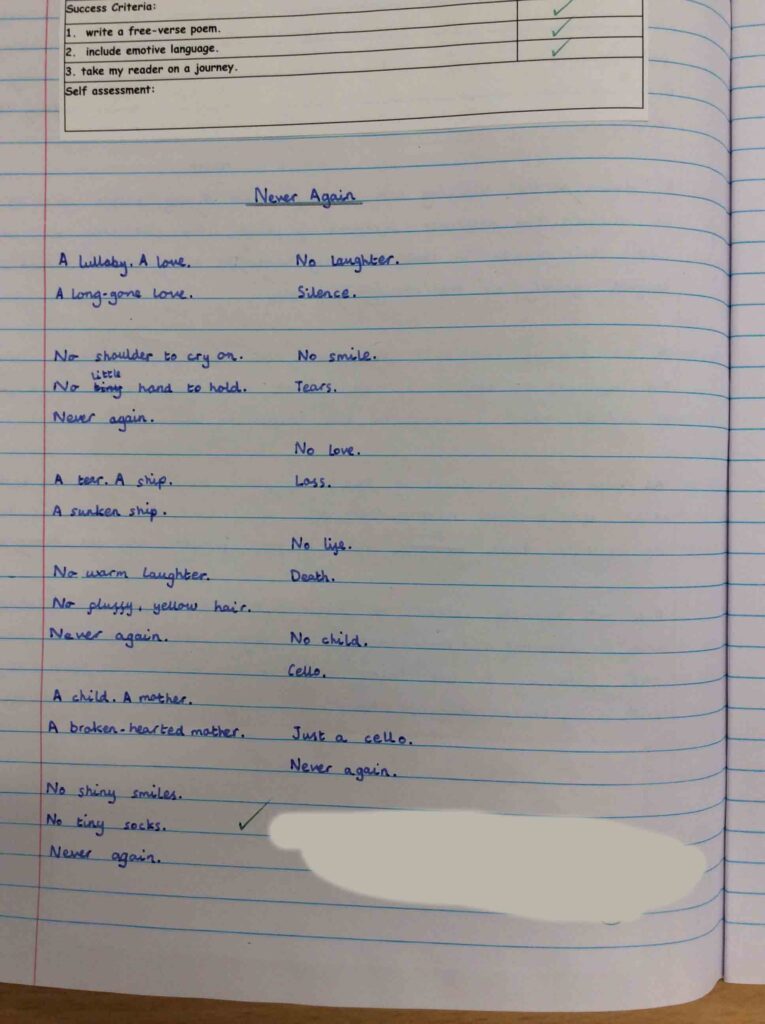 Success Criteria:
1. write a free-verse poem.
2. include emotive language.
3. take my reader on a journey.
Self assessment:
Never Again
A lullaby. A love.
A long-gone love.
No shoulder to cry on.
No little hand to hold.
Never again.
A tear. A ship.
A sunken ship.
No warm laughter.
No fluffy, yellow hair.
Never again.
A child. A mother.
A broken-hearted mother.
No shiny smiles.
No tiny socks.
Never again.
No laughter.
Silence.
No smile.
Tears.
No love.
Loss.
No life.
Death.
No child.
Cello.
Just a cello.
Never again.